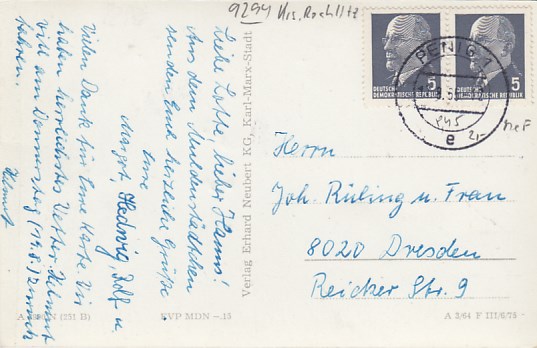 9294
Krs. Rochlitz
DEUTSCHE
DEMOKRATISCHE REPUBLIK
5
DEUTSCHE
DEMOKRATISCHE REPUBLIK
5
PENIG 1
e
Liebe Lotte, lieber Hanns!
Aus dem Muldenstädtchen
senden Euch herzliche Grüße
Eure
Margit, Hedwig, Rolf u.
Vielen Dank für Eure Karte. Wir
haben herrlichstes Wetter. Helmut
will am Donnerstag (19.8.) zurück
fahren.
Helmut
Verlag Erhard Neubert KG, Karl-Marx-Stadt
Herrn
Joh. Rüling u. Frau
8020 Dresden
Reicker Str. 9
(251 B)
EVP MDN -.15
A 3/64 F III/6/75